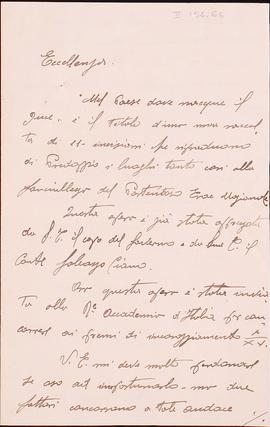 II 196.66
Eccellenza.
"Nel Paese dove nacque il
Duce" è il titolo d'una mia raccol
ta di 11 incisioni che riproducono
di Predappio i luoghi tanto cari alla
fanciullezza del Portentoso Eroe Nazionale
Questa opera è già stata
da S. E. il capo del Governo e da S. E. il
Conte Galeazzo Ciano.
Ora questa opera è stata invia
ta alla R. Accademia d'Italia per con
correre ai premi di incoraggiamento
V. E. mi deve molto perdonare
se oso ad importunarla - ma due
fattori concorrono a tale audacia